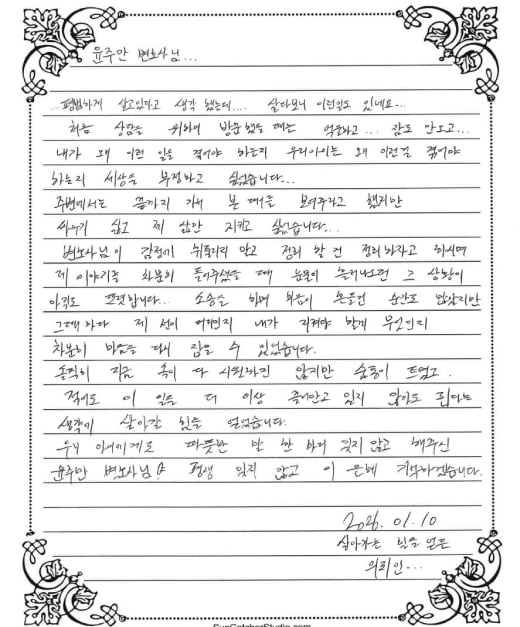 윤주만 변호사님...
평범하게 살고있다고 생각 했는데.... 살다보니 이런일도 있네요...
처음 상담을 위하여 방문했을 때는 억울하고... 잠도 안오고...
내가 왜 이런 일을 겪어야 하는지 우리아이는 왜 이런걸 겪어야
하는지 세상을 부정하고 싶었습니다...
주변에서는 끝까지 가서 본때를 보여주라고 했지만
싸우기 싫고 제 삶만 지키고 싶었습니다...
변호사님이 감정에 휘둘리지 말고 정리 할 건 정리하자고 하시며
제 이야기를 차분히 들어주셨을 때 눈물이 흘러나오던 그 상황이
아직도 또렷합니다... 소송을 하며 마음이 흔들린 순간도 많았지만
그때마다 제 선이 어디인지 내가 지켜야 할게 무엇인지
차분히 마음을 다시 잡을 수 있었습니다.
솔직히 지금 속이 다 시원하진 않지만 숨통이 트였고
적어도 이 일을 더 이상 끌어안고 있지 않아도 된다는
생각에 살아갈 힘을 얻었습니다.
우리 아이에게도 따뜻한 말 한 마디 잊지 않고 해주신
윤주만 변호사님 평생 잊지 않고 이 은혜 기억하겠습니다.
2026. 01. 10
살아가는 힘을 얻은
의뢰인...
SunCatcherStudio.com